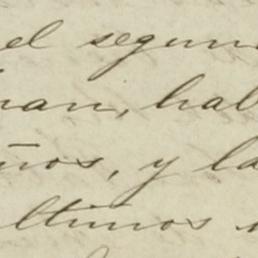 el segun
nan, hab
ños, y la
ltimos